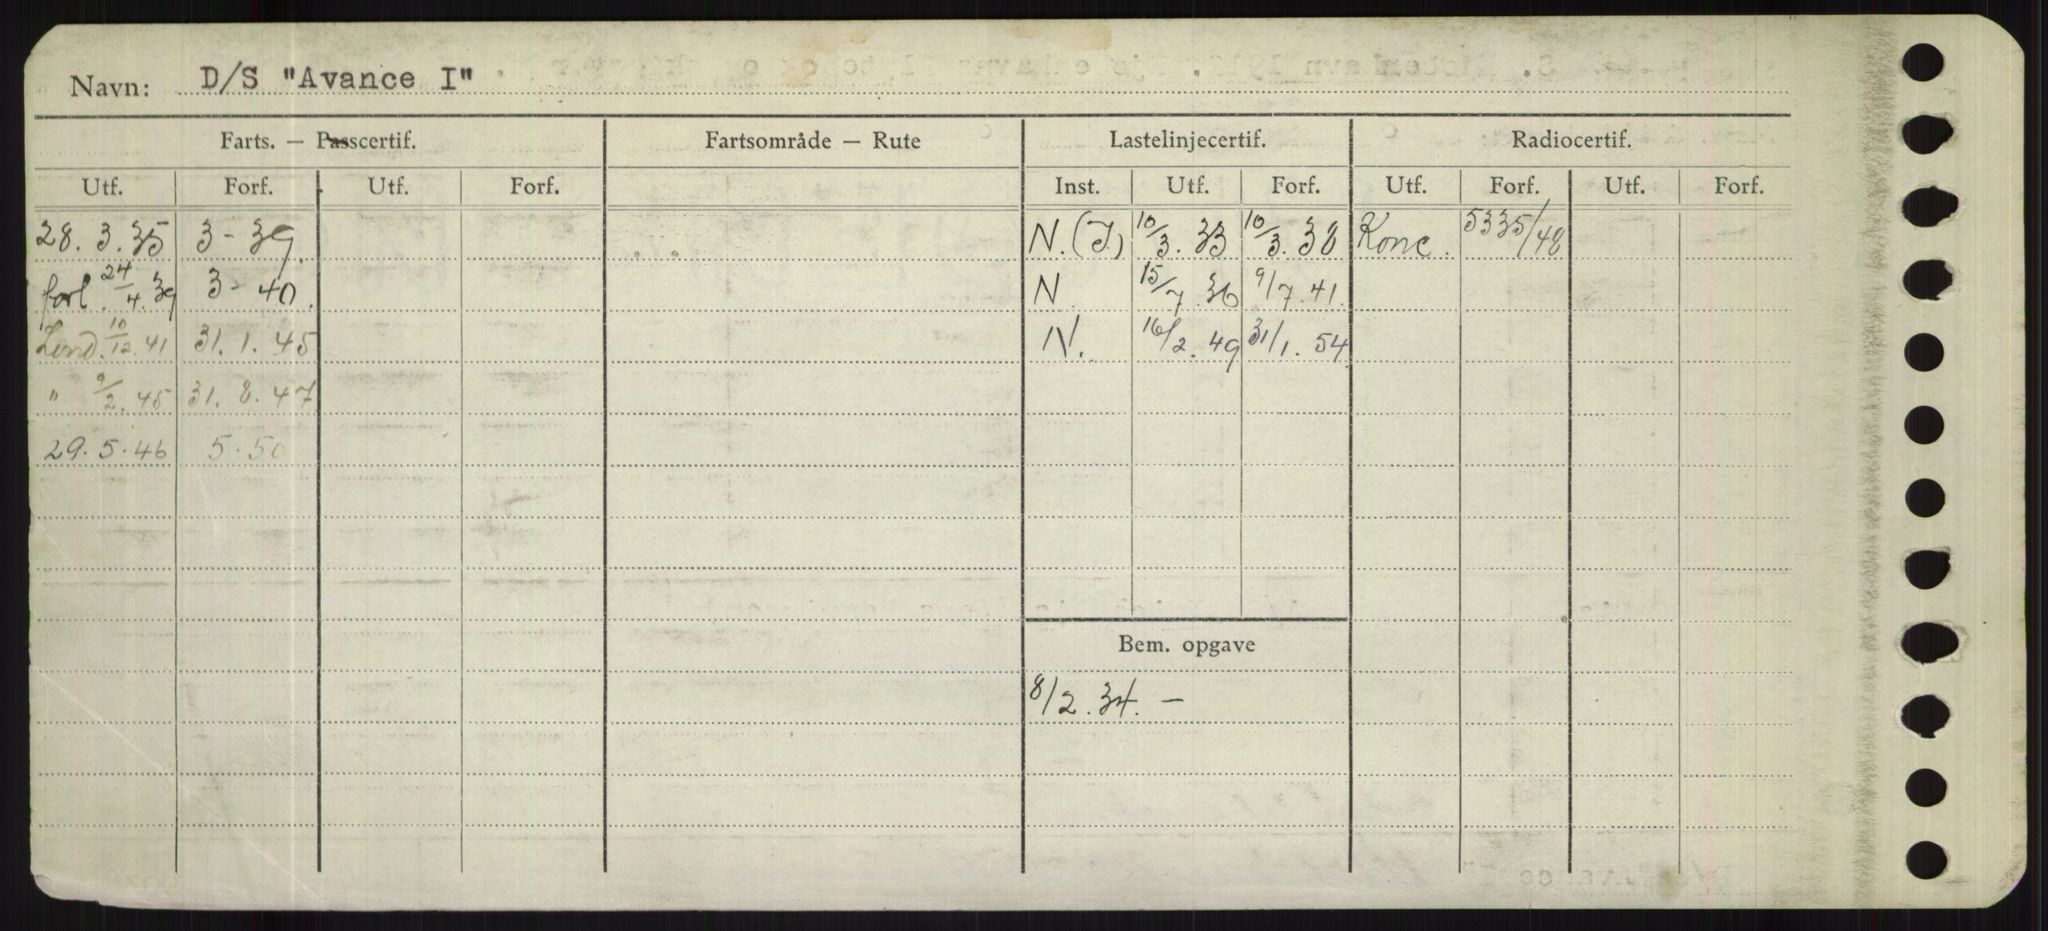 Navn: D/S "Avance I"
Farts. — Passcertif. Fartsområde — Rute Lastelinjecertif. Radiocertif.
Utf. Forf. Utf. Forf. Inst. Utf. Forf. Utf. Forf. Utf. Forf.
28. 3. 35 3 - 39. N. (I) 10/3. 33 10/3. 38 Konc. 5335/48
forl. 24/4. 39 3 - 40. N. 15/7. 36 9/7. 41.
Lond. 10/12. 41 31. 1. 45 N. 16/2. 49 31/1. 54
" 9/2. 45 31. 8. 47
29. 5. 46 5. 50
Bem. opgave
8/2. 34. —